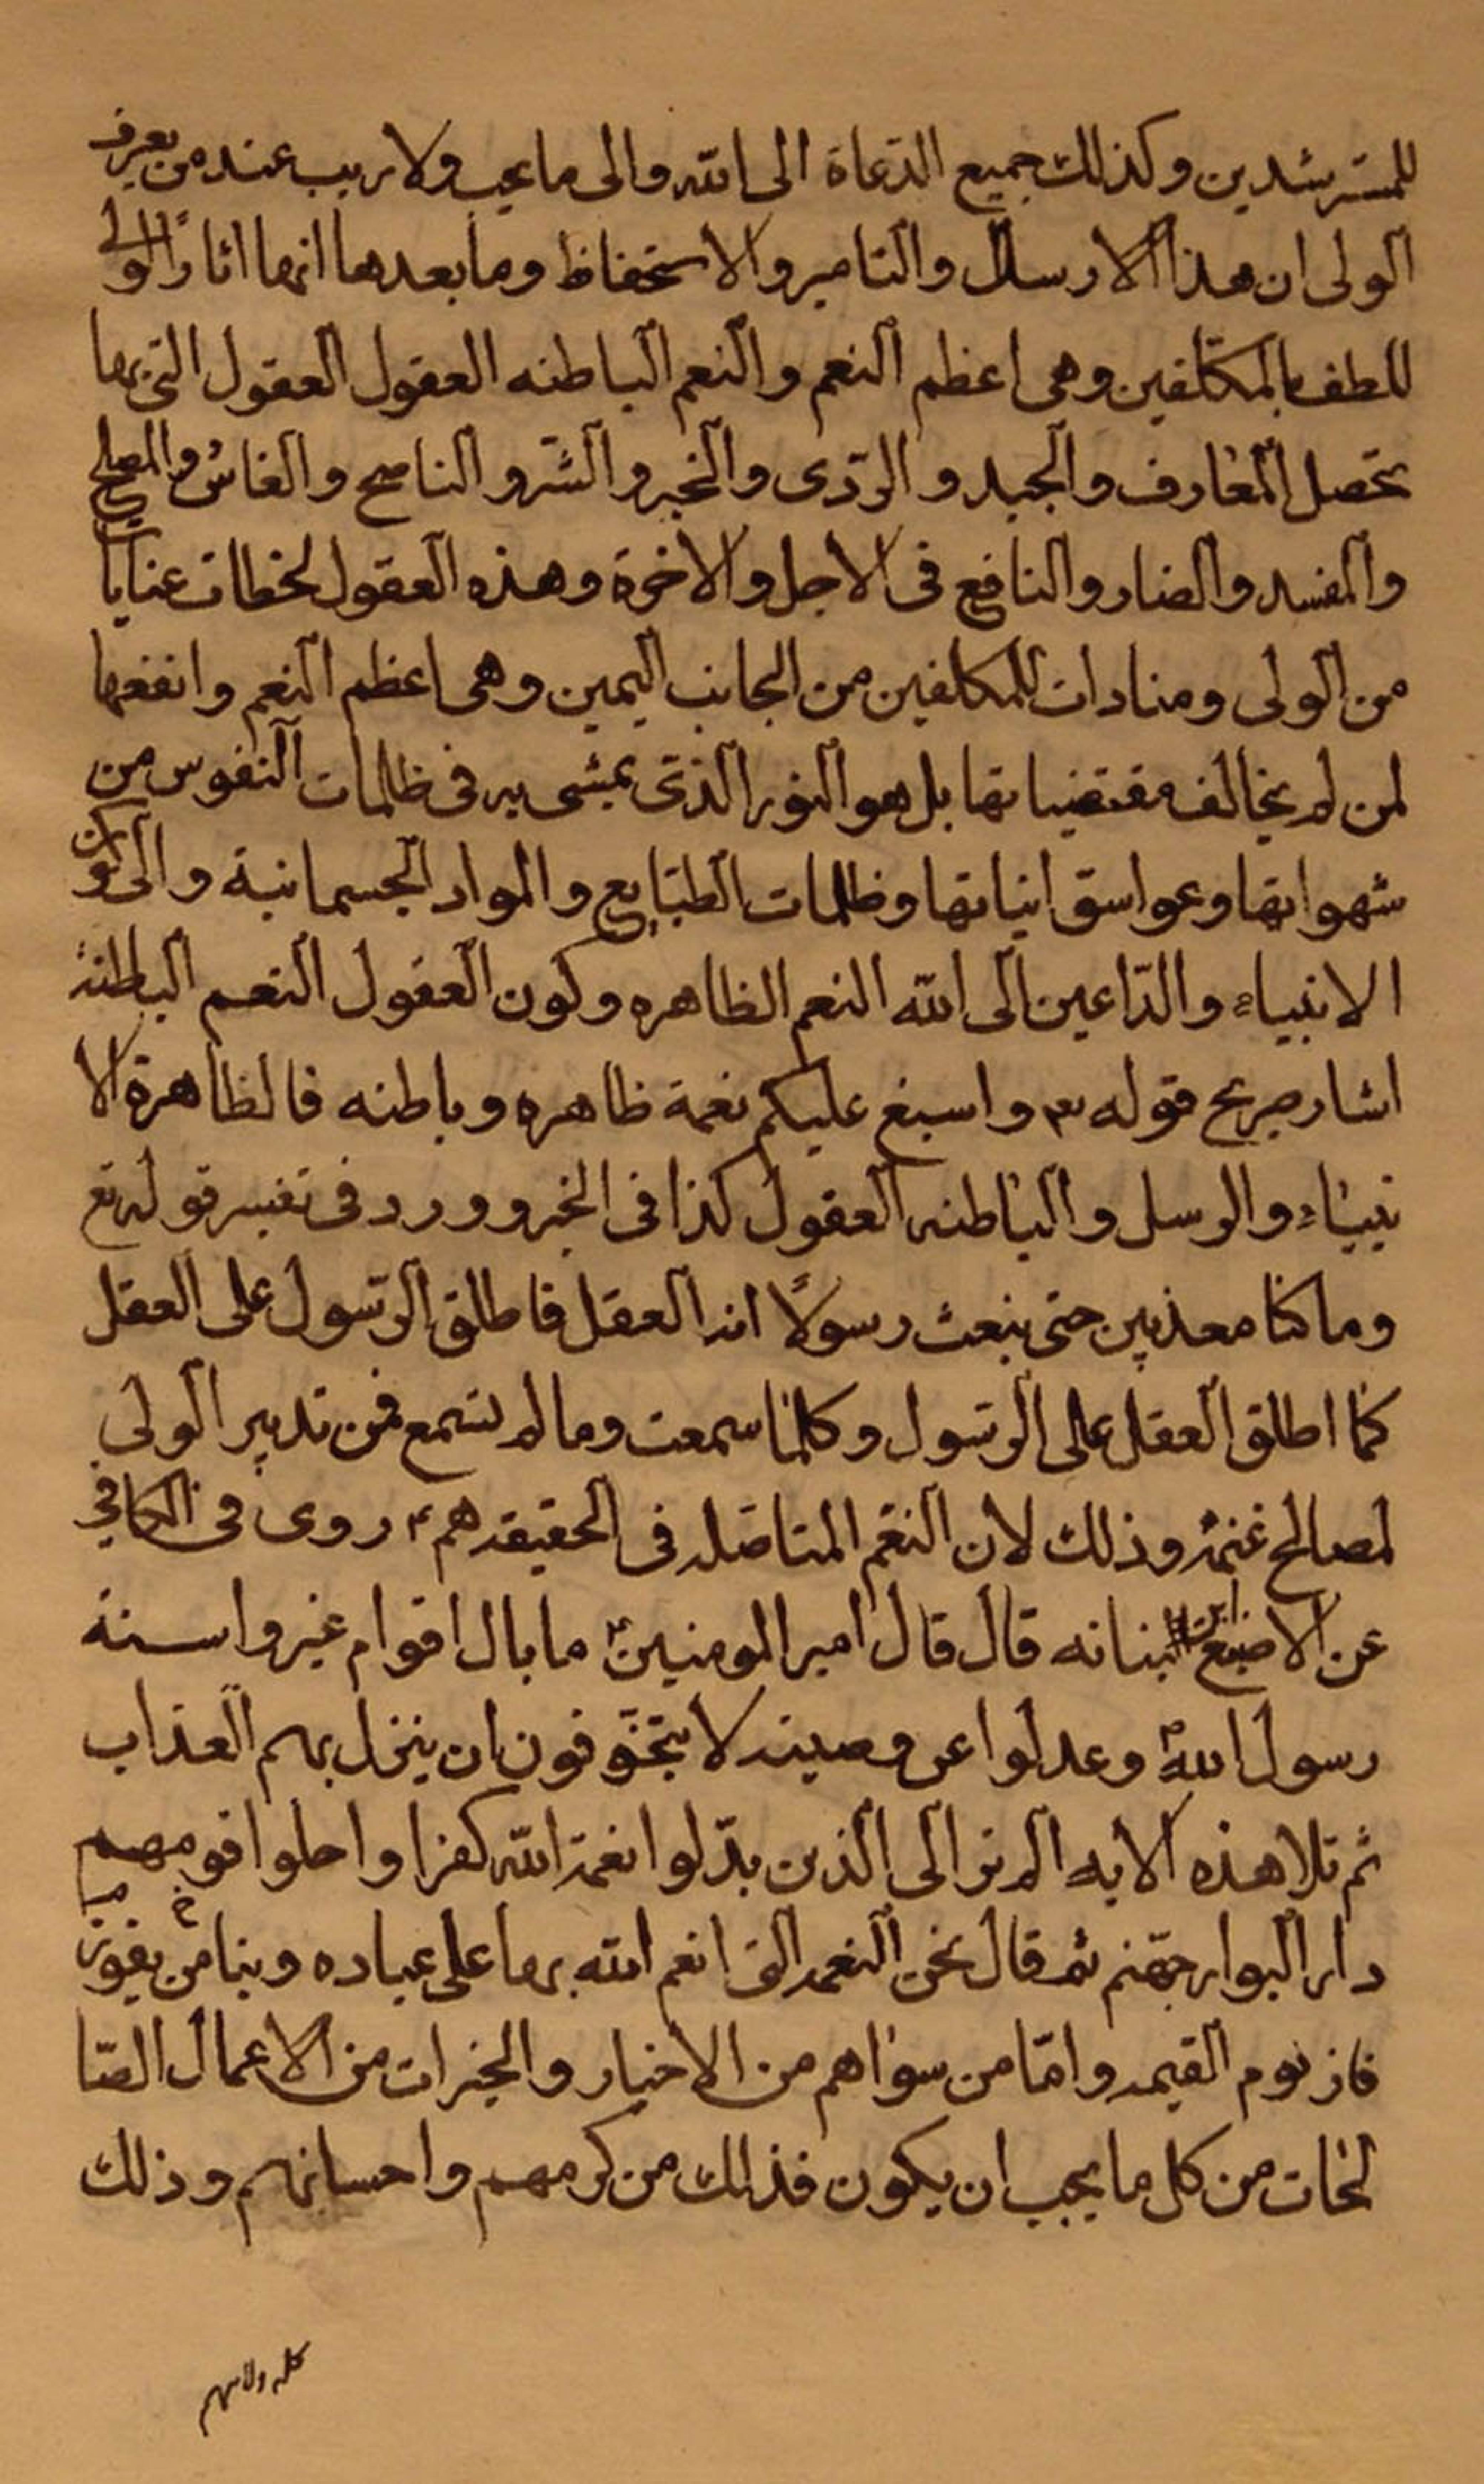 للمسترشدين وكذلك جميع الدعاة الى الله والى ما يحب ولا ريب عند من يعرف
الولى ان هذا الارسال والتامير والاستحفاظ وما بعدها انها اثار الولى
للطف بالمكلّفين وهى اعظم النعم والنعم الباطنه العقول العقول التى بها
تحصل المعارف والجيد والردّى والخير والشّر والناصح والغاش والمصلح
والمفسد والضار والنافع فى الاجل والاخرة وهذه العقول لحظات عنايات
من الولى ومنادات للمكلفين من الجانب اليمين وهى اعظم النعم وانفعها
لمن لم يخالف مقتضياتها بل هو النور الذى يمشى به فى ظلمات النفوس من
شهواتها وعواسق انياتها وظلمات الطبايع والمواد الجسمانية والى كون
الانبياء والدّاعين الى الله النعم الظاهره وكون العقول النعم الباطنة
اشار صريح قوله تع واسبغ عليكم نعمة ظاهره وباطنه فالظاهرة الا
نبياء والرسل والباطنه العقول كذا فى الخبر وورد فى تفسير قوله تع
وما كنا معذبين حتى نبعث رسولًا انه العقل فاطلق الرّسول على العقل
كما اطلق العقل على الرّسول وكلما سمعت وما لم تسمع فمن تدبير الولى
لمصالح غنمه وذلك لان النعم المتاصّله فى الحقيقه هم ع روى فى الكافى
عن الاصبغ ابن نباته قال قال امير المومنين ع ما بال اقوام غيروا سنة
رسول الله ص وعدلوا عن وصيته لا يتخوّفون ان ينزل بهم العذاب
ثم تلا هذه الايه الم تر الى الذين بدّلوا نعمة الله كفرا واحلوا قومهم
دار البوار جهّنم ثم قال نحن النعمه التى انعم الله بها على عباده وبنا يفوز من
فاز يوم القيمه وامّا من سواهم من الاخيار والخيرات من الاعمال الصّا
لحات من كل ما يحب ان يكون فذلك من كرمهم واحسانهم وذلك